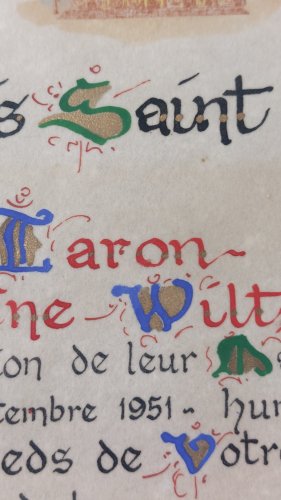 s Saint
Laron~
ine Wilt
ion de leur
tembre 1951 ~ hum
eds de Votre